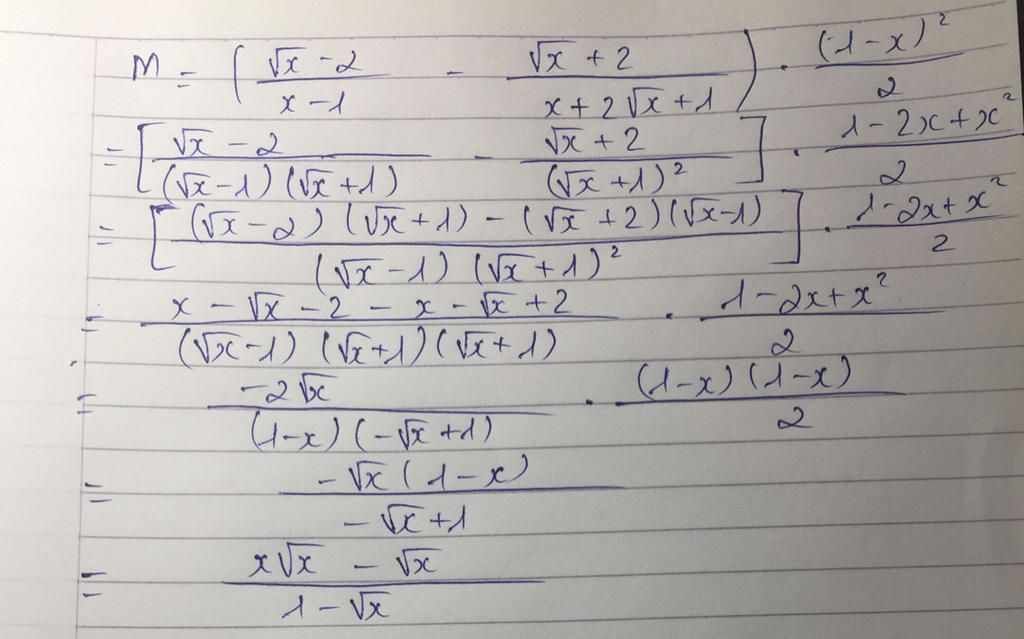 M = ( (√x - 2)/(x - 1) - (√x + 2)/(x + 2√x + 1) ) . (1 - x)²/2
= [ (√x - 2)/((√x - 1)(√x + 1)) - (√x + 2)/(√x + 1)² ] . (1 - 2x + x²)/2
= [ ((√x - 2)(√x + 1) - (√x + 2)(√x - 1))/((√x - 1)(√x + 1)²) ] . (1 - 2x + x²)/2
= (x - √x - 2 - x - √x + 2)/((√x - 1)(√x + 1)(√x + 1)) . (1 - 2x + x²)/2
= (-2√x)/((1 - x)(-√x + 1)) . ((1 - x)(1 - x))/2
= (-√x(1 - x))/(-√x + 1)
= (x√x - √x)/(1 - √x)